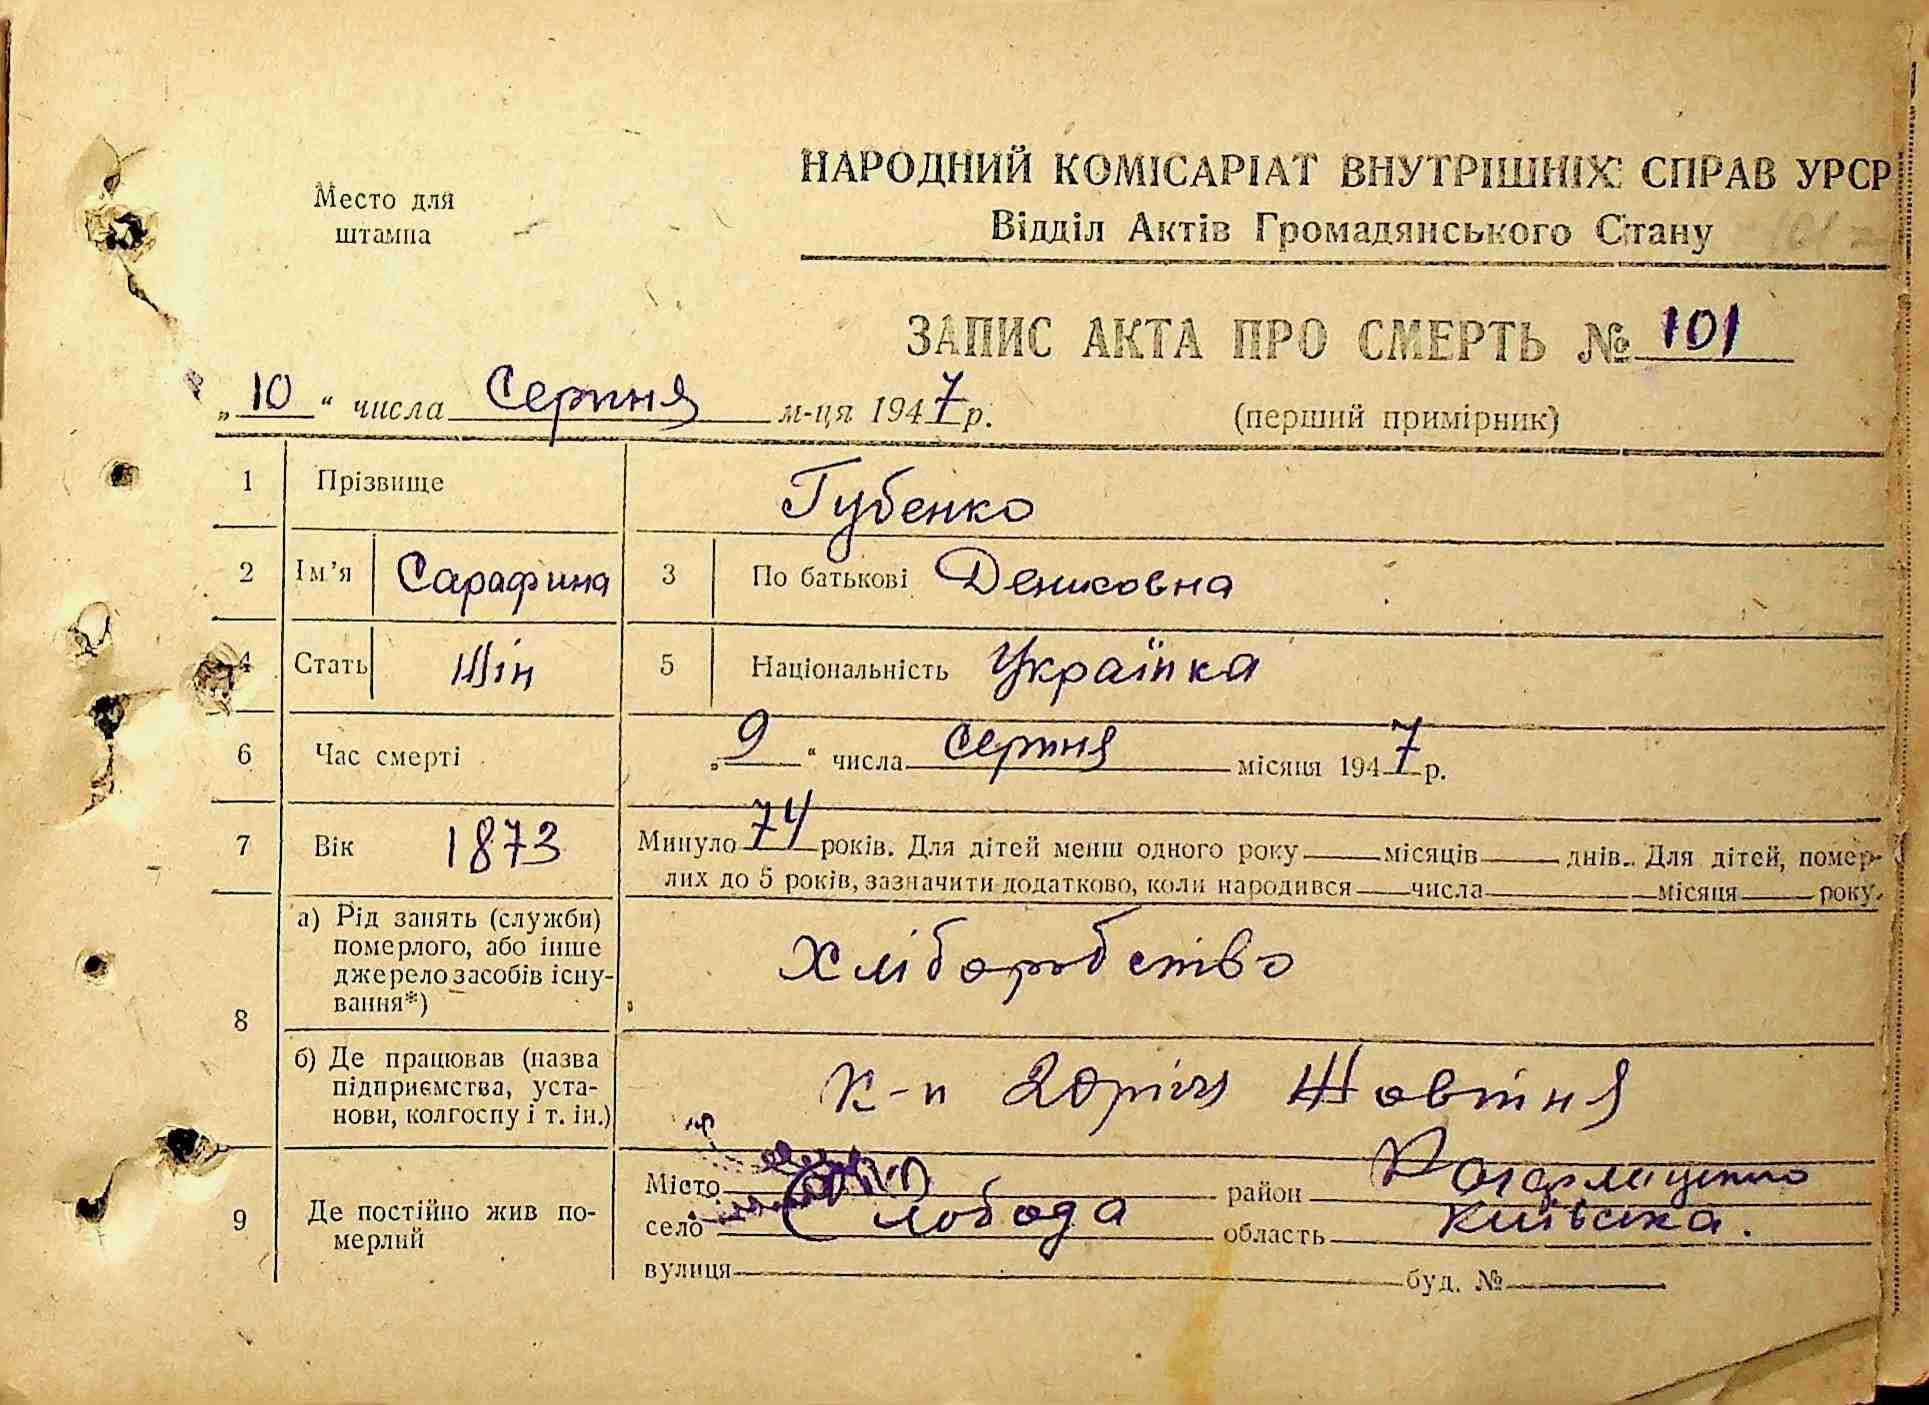 Место для
штампа
НАРОДНИЙ КОМІСАРІАТ ВНУТРІШНІХ СПРАВ УРСР
Відділ Актів Громадянського Стану
ЗАПИС АКТА ПРО СМЕРТЬ № 101
„10“ числа Серпня м-ця 1947 р.
(перший примірник)
1 Прізвище Губенко
2 Ім’я Сарафина 3 По батькові Денисовна
4 Стать Жін 5 Національність Українка
6 Час смерті „9“ числа серпня місяця 1947 р.
7 Вік 1873 Минуло 74 років. Для дітей менш одного року місяців днів. Для дітей, помер-
лих до 5 років, зазначити додатково, коли народився числа місяця року.
8 а) Рід занять (служби)
померлого, або інше
джерело засобів існу-
вання*)
хліборобство
б) Де працював (назва
підприємства, уста-
нови, колгоспу і т. ін.)
к-п 20річч Жовтня
9 Де постійно жив по-
мерлий
Місто район
село Слобода область Київська.
вулиця буд. №